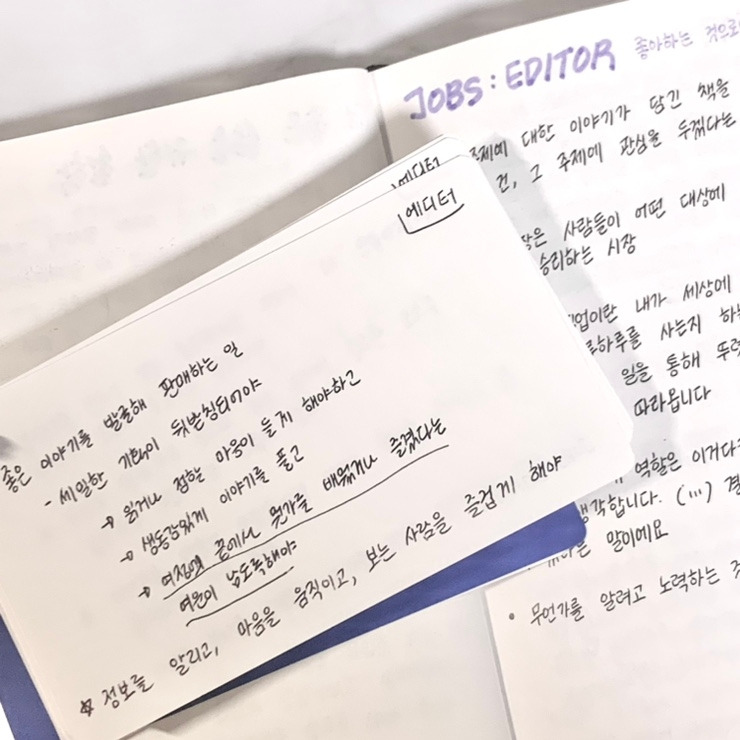 JOBS : EDITOR 좋아하는 것으로
주제에 대한 이야기가 담긴 책을
건, 그 주제에 관심을 두겠다는
사람들이 어떤 대상에
승리하는 시장
내가 세상에
사는지 하는
일을 통해
따라옵니다
역할은 이거다
생각합니다. (…)
말이에요
• 무언가를 알려고 노력하는
에디터
에디터
좋은 이야기를 발굴해 판매하는 일
- 세밀한 기획이 뒷받침되어야
→ 읽거나 접할 마음이 들게 해야하고
→ 생동감있게 이야기를 풀고
→ 여정의 끝에서 뭔가를 배웠거나 즐겼다는
여운이 남도록해야
☆ 정보를 알리고, 마음을 움직이고, 보는 사람을 즐겁게 해야